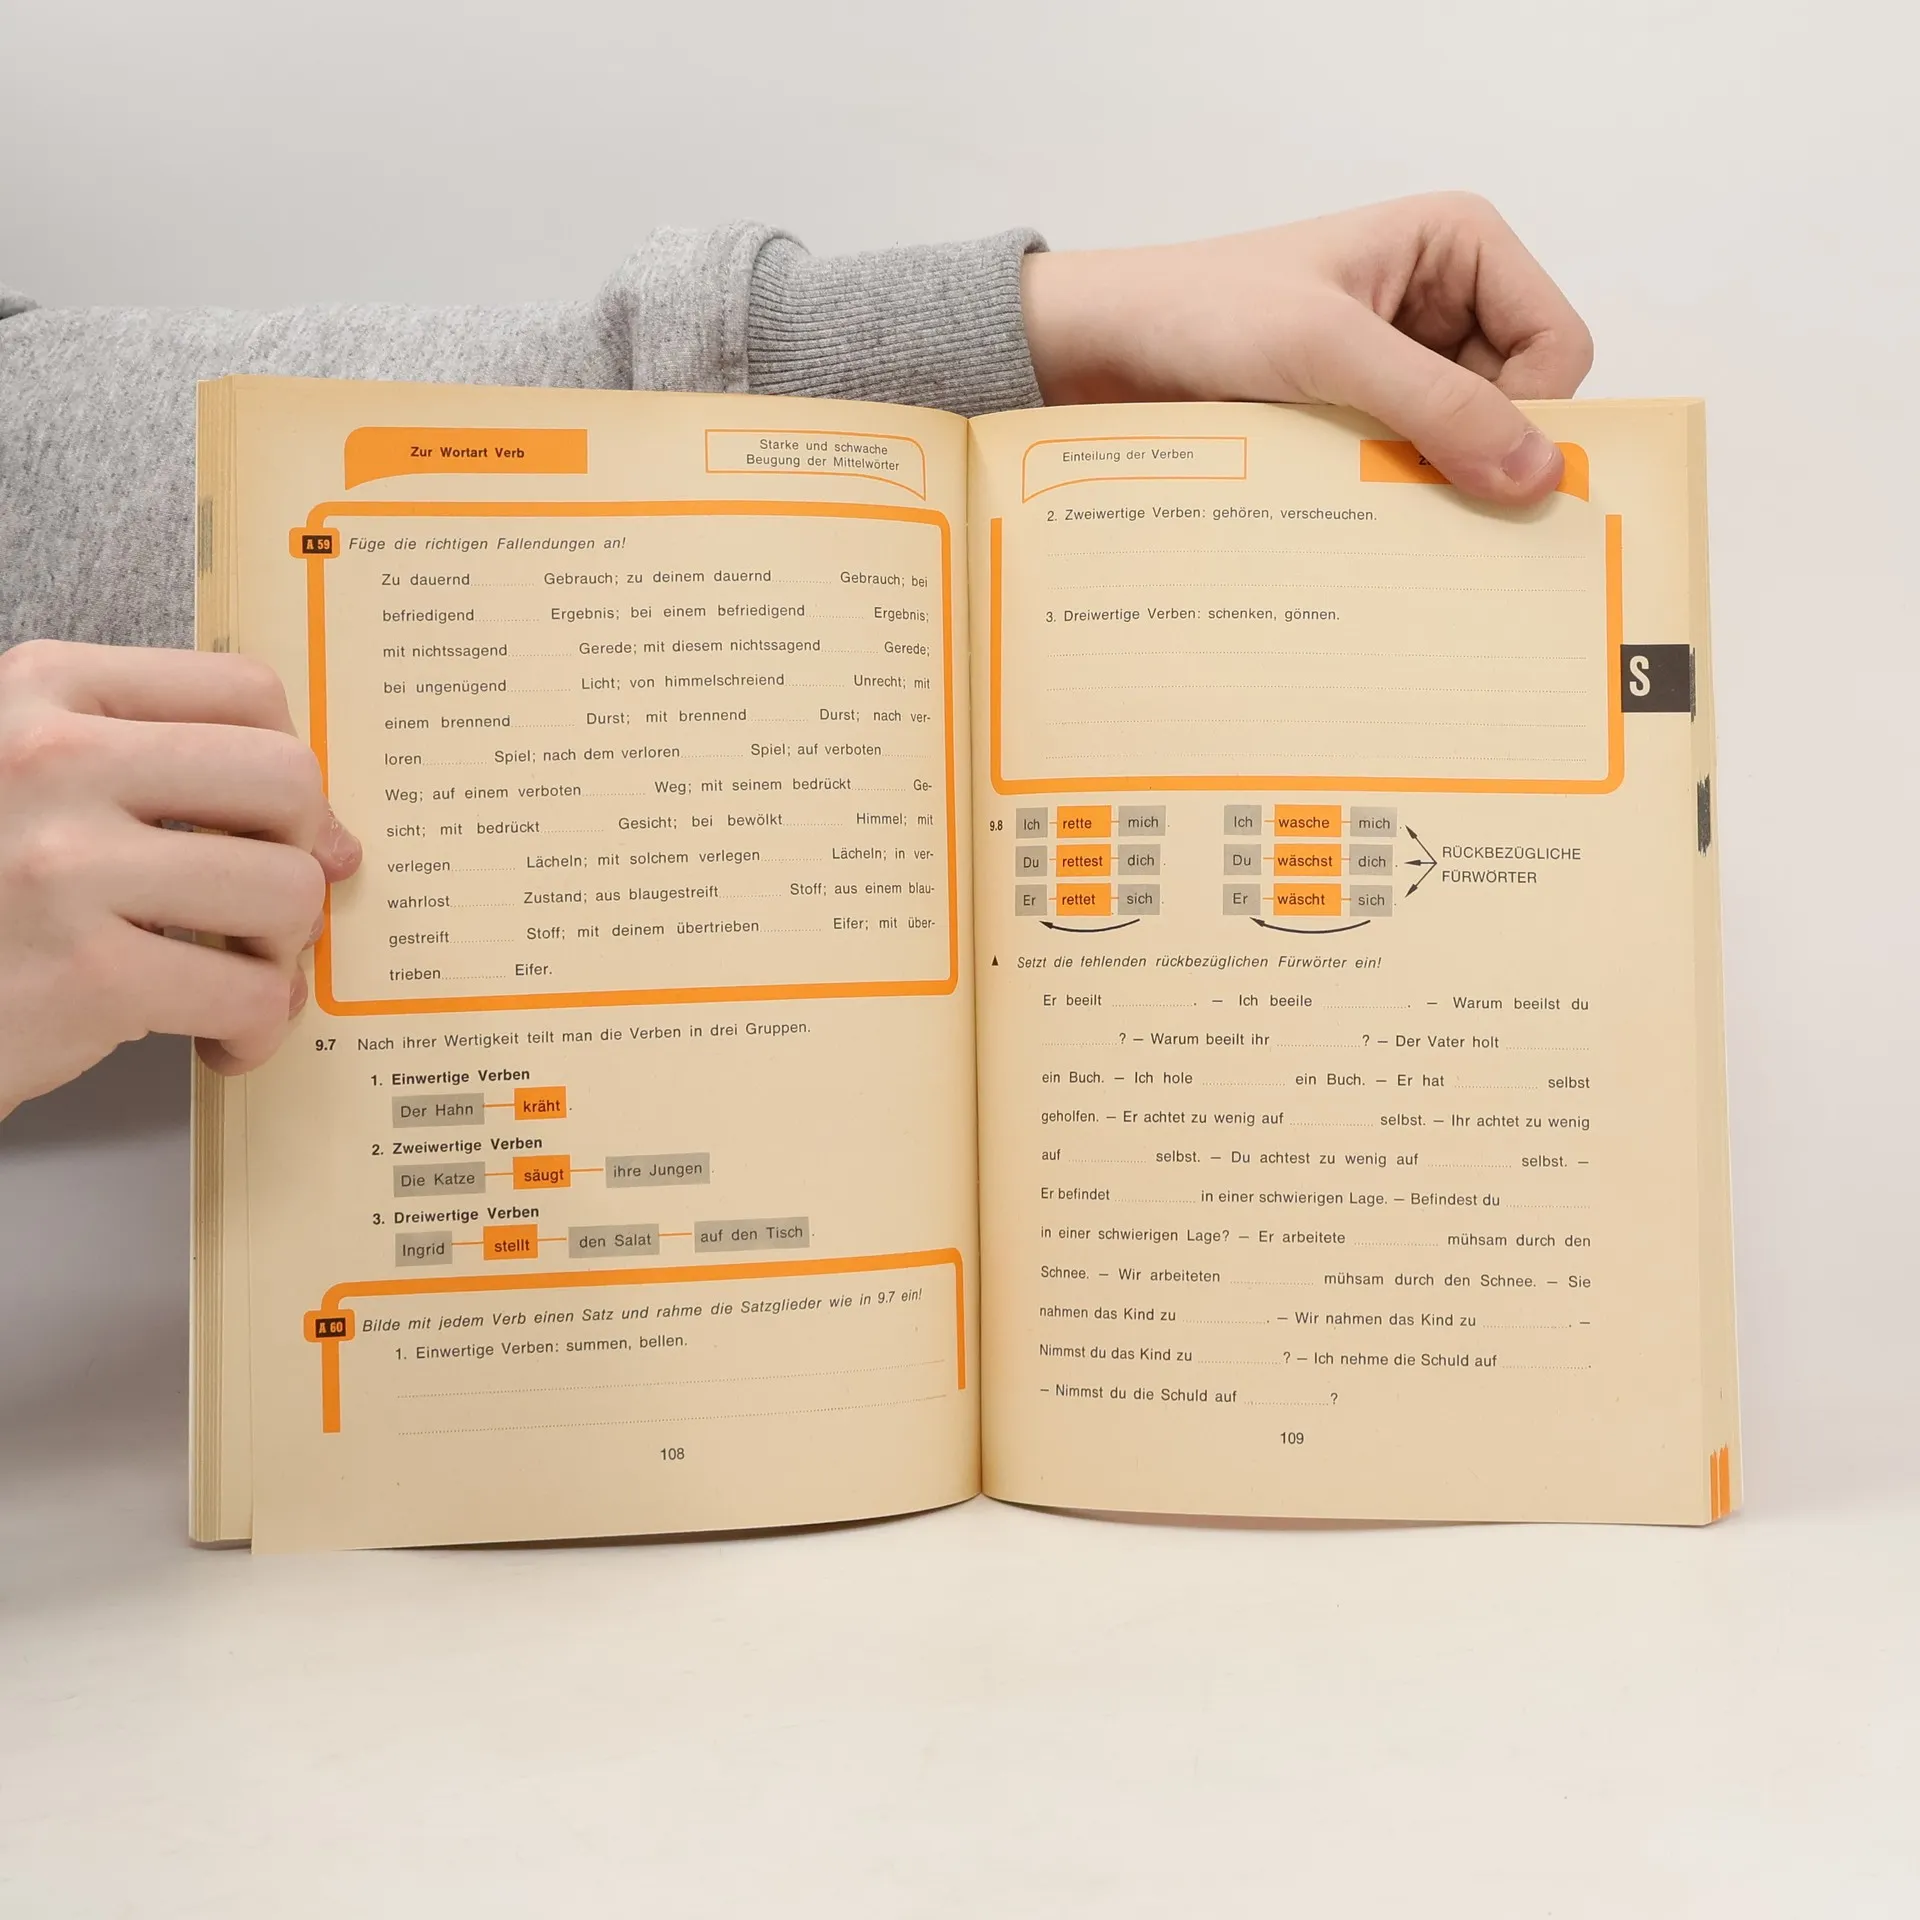 Zur Wortart Verb
Starke und schwache
Beugung der Mittelwörter
A 59 Füge die richtigen Fallendungen an!
Zu dauernd.......... Gebrauch; zu deinem dauernd.......... Gebrauch; bei
befriedigend.......... Ergebnis; bei einem befriedigend.......... Ergebnis;
mit nichtssagend.......... Gerede; mit diesem nichtssagend.......... Gerede;
bei ungenügend.......... Licht; von himmelschreiend.......... Unrecht; mit
einem brennend.......... Durst; mit brennend.......... Durst; nach ver-
loren.......... Spiel; nach dem verloren.......... Spiel; auf verboten..........
Weg; auf einem verboten.......... Weg; mit seinem bedrückt.......... Ge-
sicht; mit bedrückt.......... Gesicht; bei bewölkt.......... Himmel; mit
verlegen.......... Lächeln; mit solchem verlegen.......... Lächeln; in ver-
wahrlost.......... Zustand; aus blaugestreift.......... Stoff; aus einem blau-
gestreift.......... Stoff; mit deinem übertrieben.......... Eifer; mit über-
trieben.......... Eifer.
9.7 Nach ihrer Wertigkeit teilt man die Verben in drei Gruppen.
1. Einwertige Verben
Der Hahn kräht.
2. Zweiwertige Verben
Die Katze säugt ihre Jungen.
3. Dreiwertige Verben
Ingrid stellt den Salat auf den Tisch.
A 60 Bilde mit jedem Verb einen Satz und rahme die Satzglieder wie in 9.7 ein!
1. Einwertige Verben: summen, bellen.
108
Einteilung der Verben
2. Zweiwertige Verben: gehören, verscheuchen.
3. Dreiwertige Verben: schenken, gönnen.
S
9.8 Ich rette mich. Ich wasche mich.
Du rettest dich. Du wäschst dich.
Er rettet sich. Er wäscht sich.
RÜCKBEZÜGLICHE
FÜRWÖRTER
▲ Setzt die fehlenden rückbezüglichen Fürwörter ein!
Er beeilt .......... . – Ich beeile .......... . – Warum beeilst du
..........? – Warum beeilt ihr ..........? – Der Vater holt ..........
ein Buch. – Ich hole .......... ein Buch. – Er hat .......... selbst
geholfen. – Er achtet zu wenig auf .......... selbst. – Ihr achtet zu wenig
auf .......... selbst. – Du achtest zu wenig auf .......... selbst. –
Er befindet .......... in einer schwierigen Lage. – Befindest du ..........
in einer schwierigen Lage? – Er arbeitete .......... mühsam durch den
Schnee. – Wir arbeiteten .......... mühsam durch den Schnee. – Sie
nahmen das Kind zu .......... . – Wir nahmen das Kind zu .......... . –
Nimmst du das Kind zu ..........? – Ich nehme die Schuld auf .......... .
– Nimmst du die Schuld auf ..........?
109